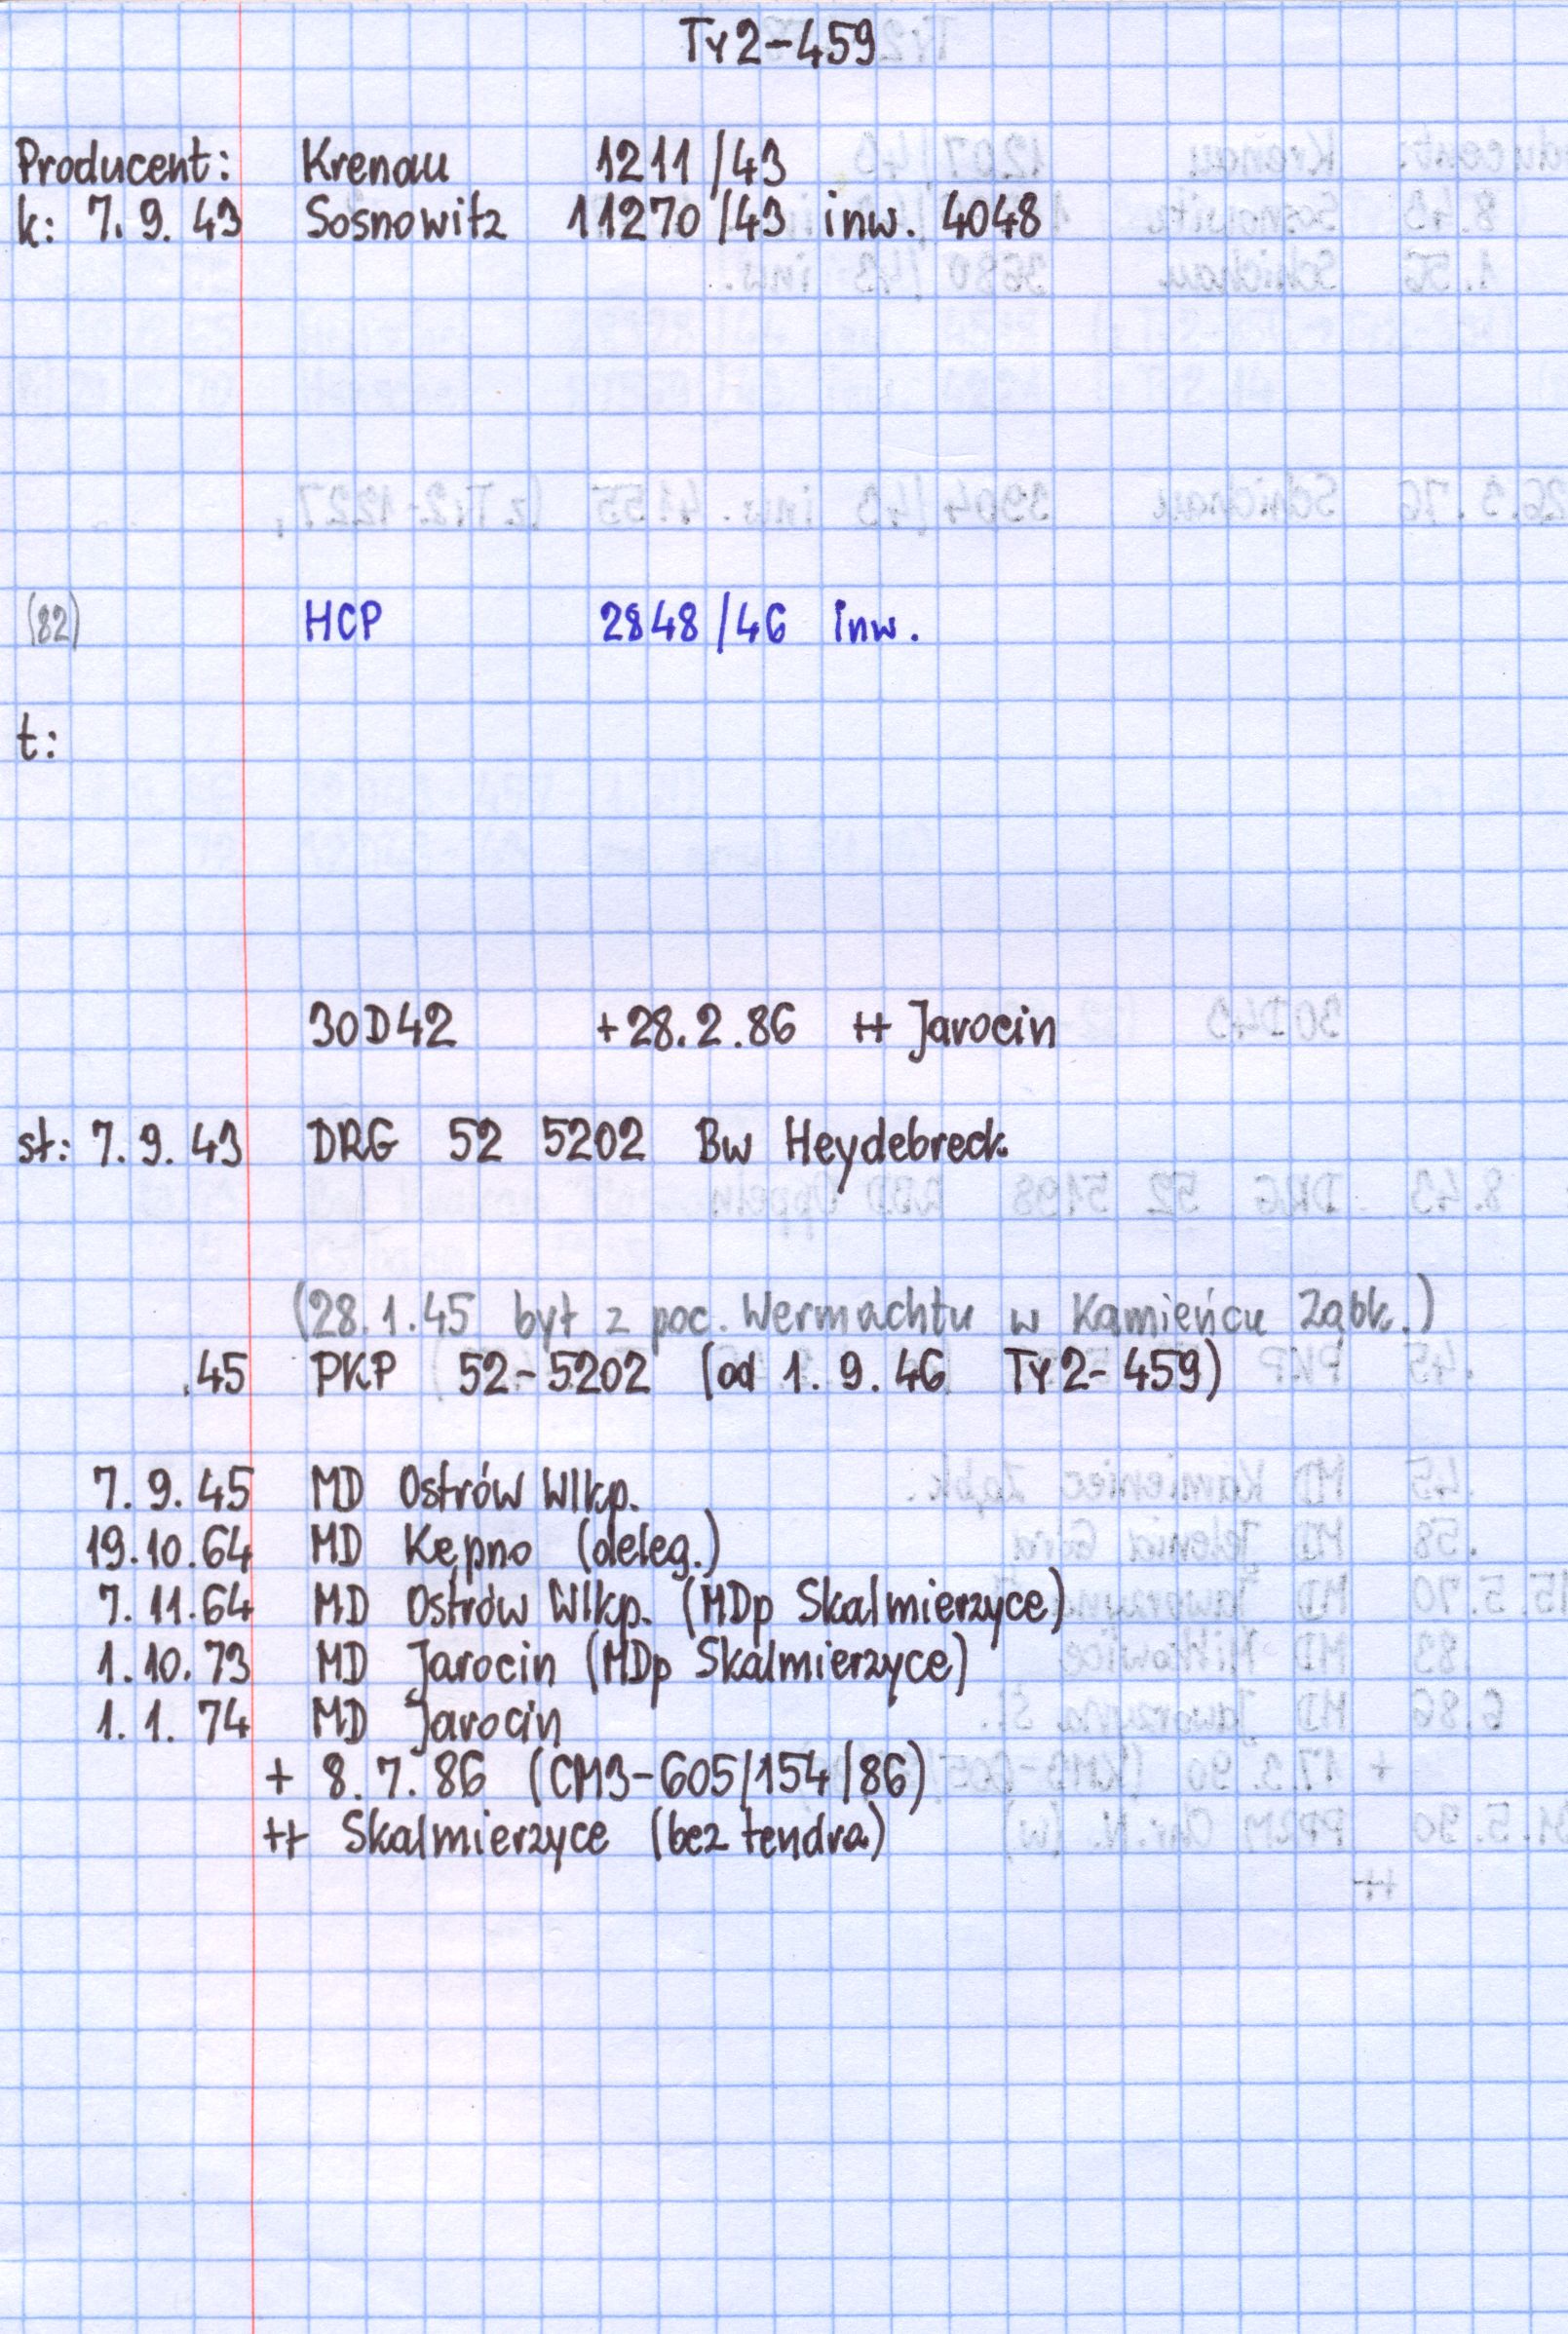 Ty2-459
Producent: Krenau 1211/43
k: 7.9.43 Sosnowitz 11270/43 inw. 4048
(82) HCP 2848/46 inw.
t:
30D42 +28.2.86 ++ Jarocin
st: 7.9.43 DRG 52 5202 Bw Heydebreck
(28.1.45 był z poc. Wermachtu w Kamieńcu Ząbk.)
.45 PKP 52-5202 (od 1.9.46 Ty2-459)
7.9.45 MD Ostrów Wlkp.
19.10.64 MD Kępno (deleg.)
7.11.64 MD Ostrów Wlkp. (MDp Skalmierzyce)
1.10.73 MD Jarocin (MDp Skalmierzyce)
1.1.74 MD Jarocin
+ 8.7.86 (CM3-605/154/86)
++ Skalmierzyce (bez tendra)